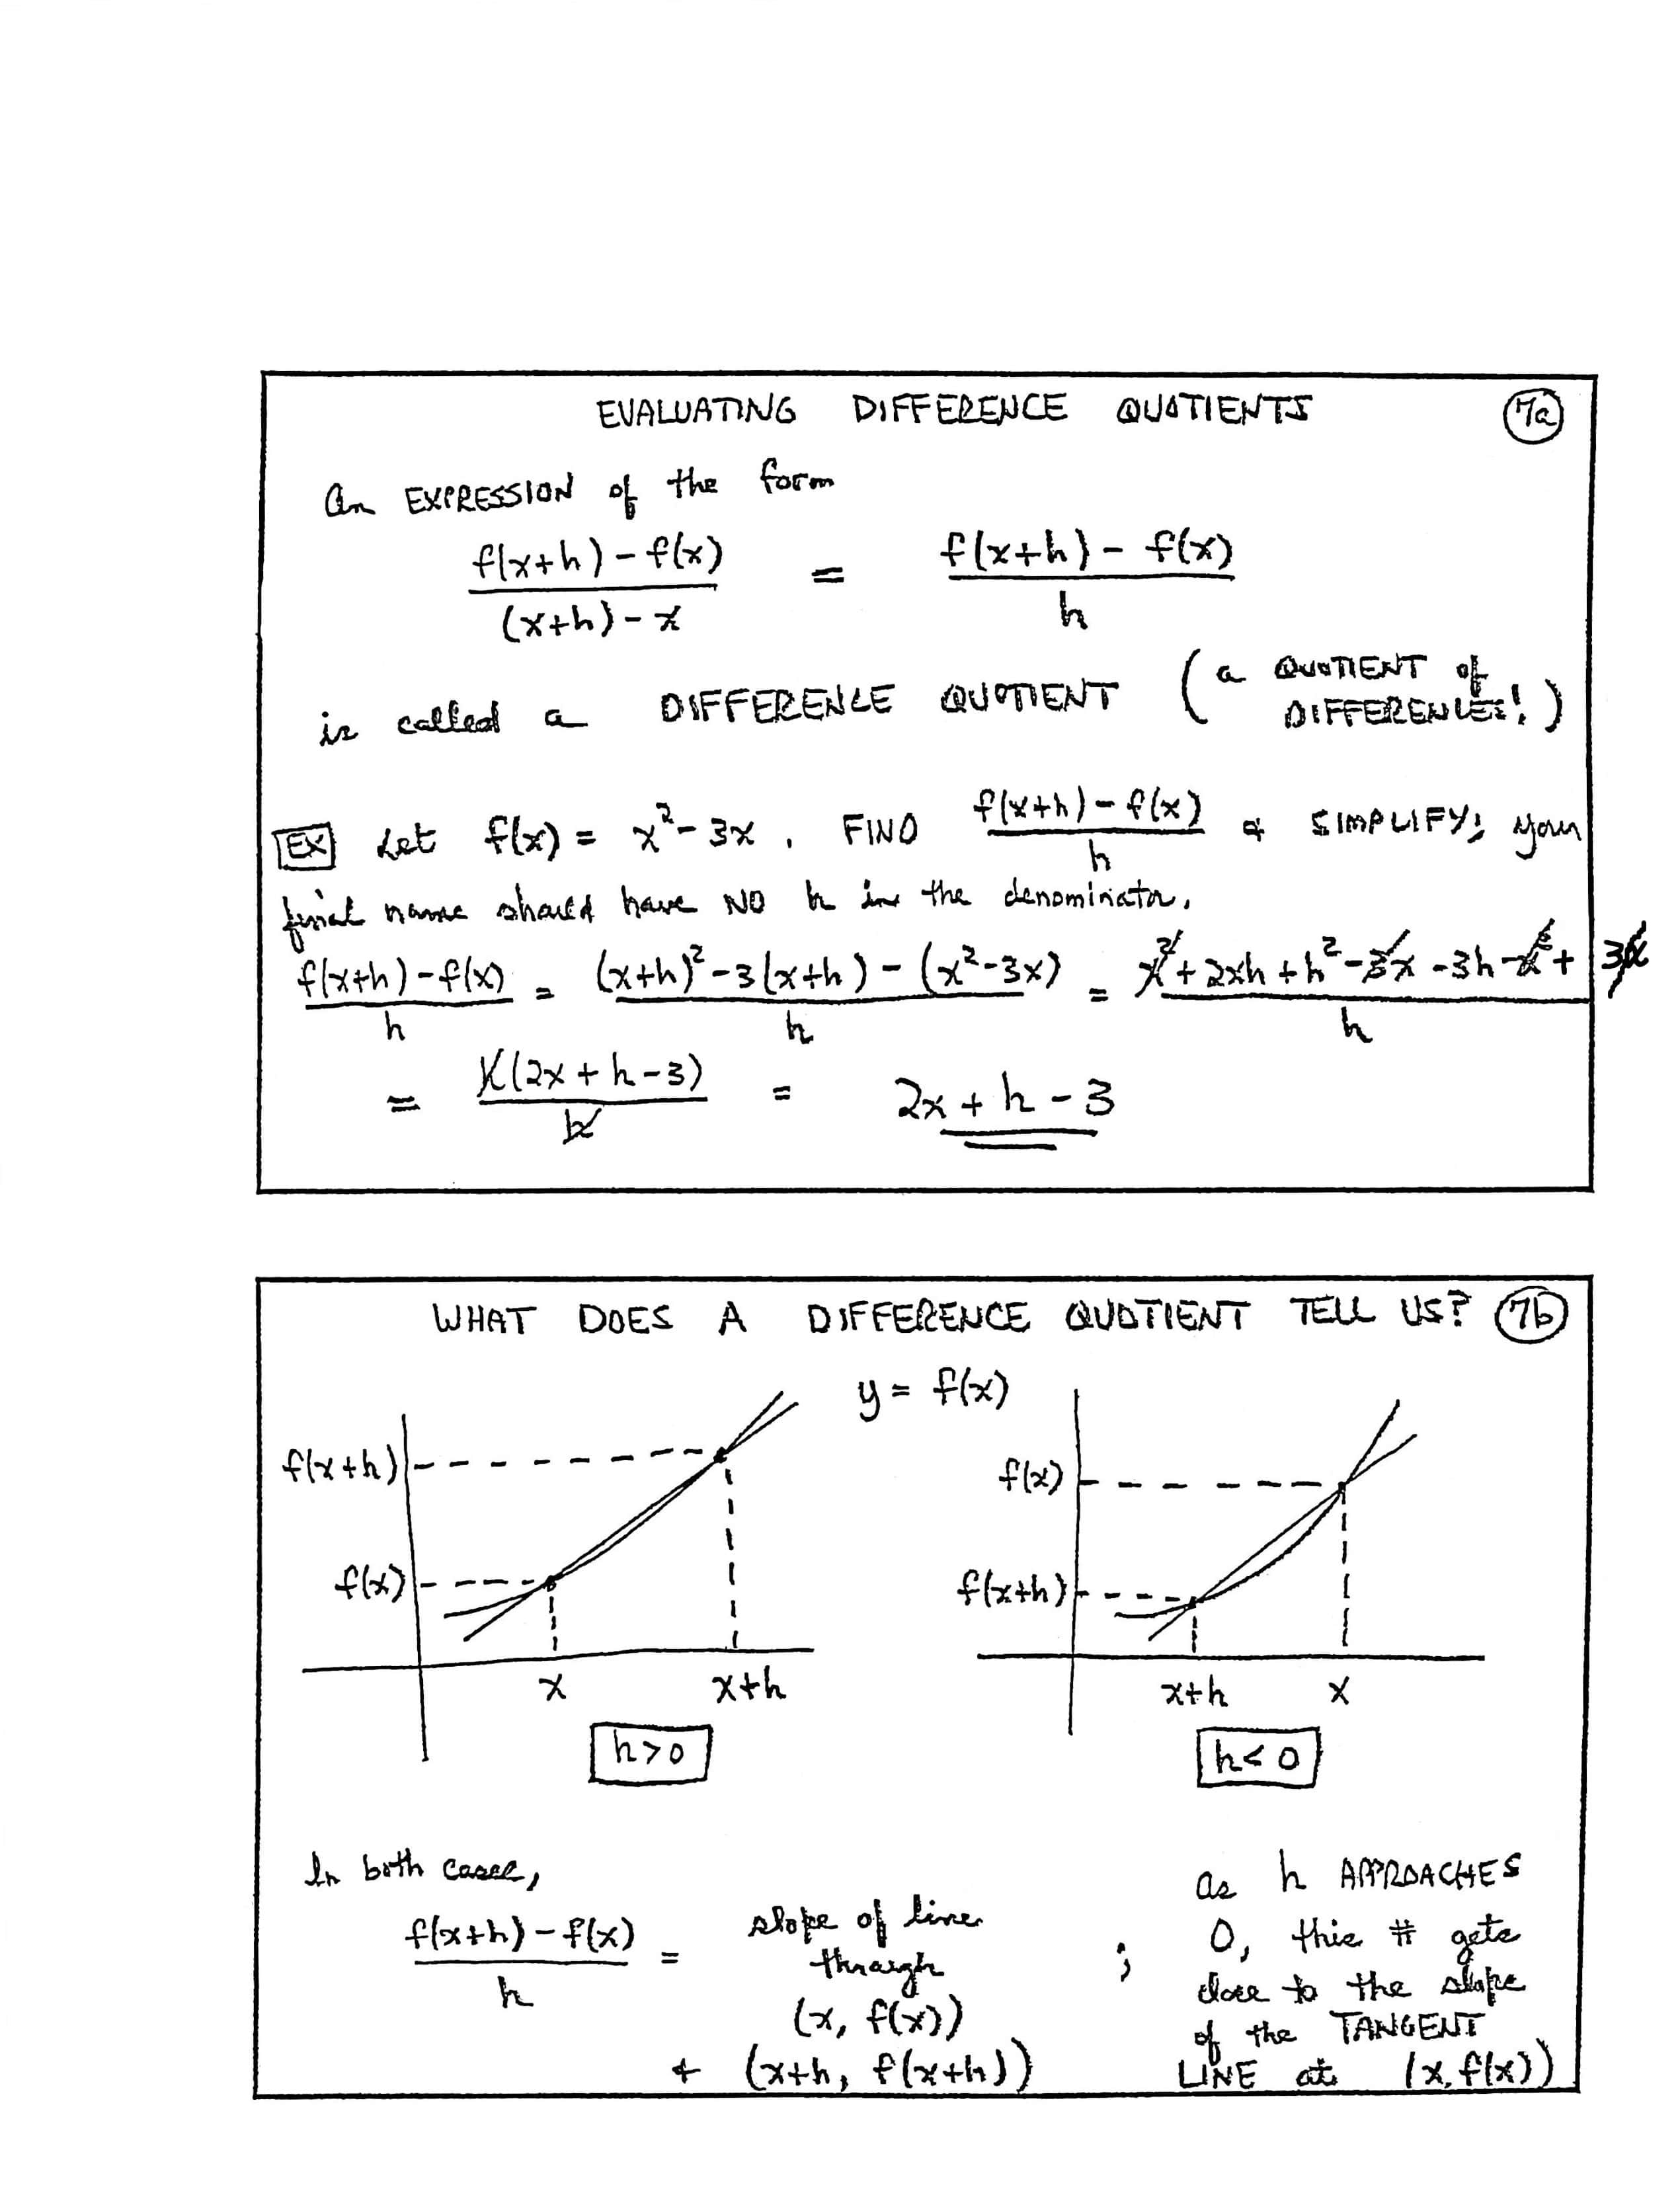 EVALUATING DIFFERENCE QUOTIENTS 7a
An EXPRESSION of the form
f(x+h) - f(x) / (x+h) - x = f(x+h) - f(x) / h
is called a DIFFERENCE QUOTIENT (a QUOTIENT of DIFFERENCES!)
EX Let f(x) = x² - 3x. FIND f(x+h) - f(x) / h & SIMPLIFY; your
final name should have NO h in the denominator.
f(x+h) - f(x) / h = (x+h)² - 3(x+h) - (x² - 3x) / h = x² + 2xh + h² - 3x - 3h - x² + 3x / h
= h(2x + h - 3) / h = 2x + h - 3
WHAT DOES A DIFFERENCE QUOTIENT TELL US? 7b
y = f(x)
f(x+h)
f(x)
x x+h
h > 0
f(x)
f(x+h)
x+h x
h < 0
In both cases,
f(x+h) - f(x) / h =
slope of line
through
(x, f(x))
& (x+h, f(x+h))
;
as h APPROACHES
0, this # gets
close to the slope
of the TANGENT
LINE at (x, f(x))